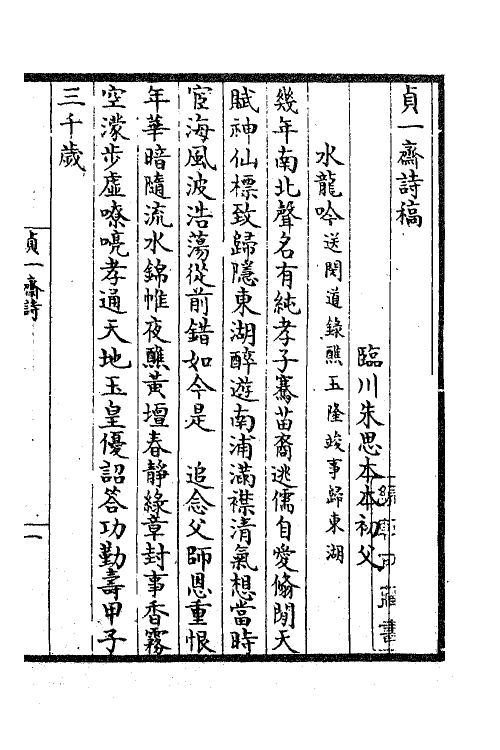 貞一齋詩稿
臨川朱思本本初父
水龍吟送閔道錄醮玉隆竣事歸東湖
幾年南北聲名有純孝子騫苗裔逃儒自愛翛閒天
賦神仙標致歸隱東湖醉遊南浦滿襟清氣想當時
宦海風波浩蕩從前錯如今是　追念父師恩重恨
年華暗隨流水錦帷夜醮黃壇春靜綠章封事香霧
空濛步虛嘹喨孝通天地玉皇優詔答功勤壽甲子
三千歲
貞一齋詩
一